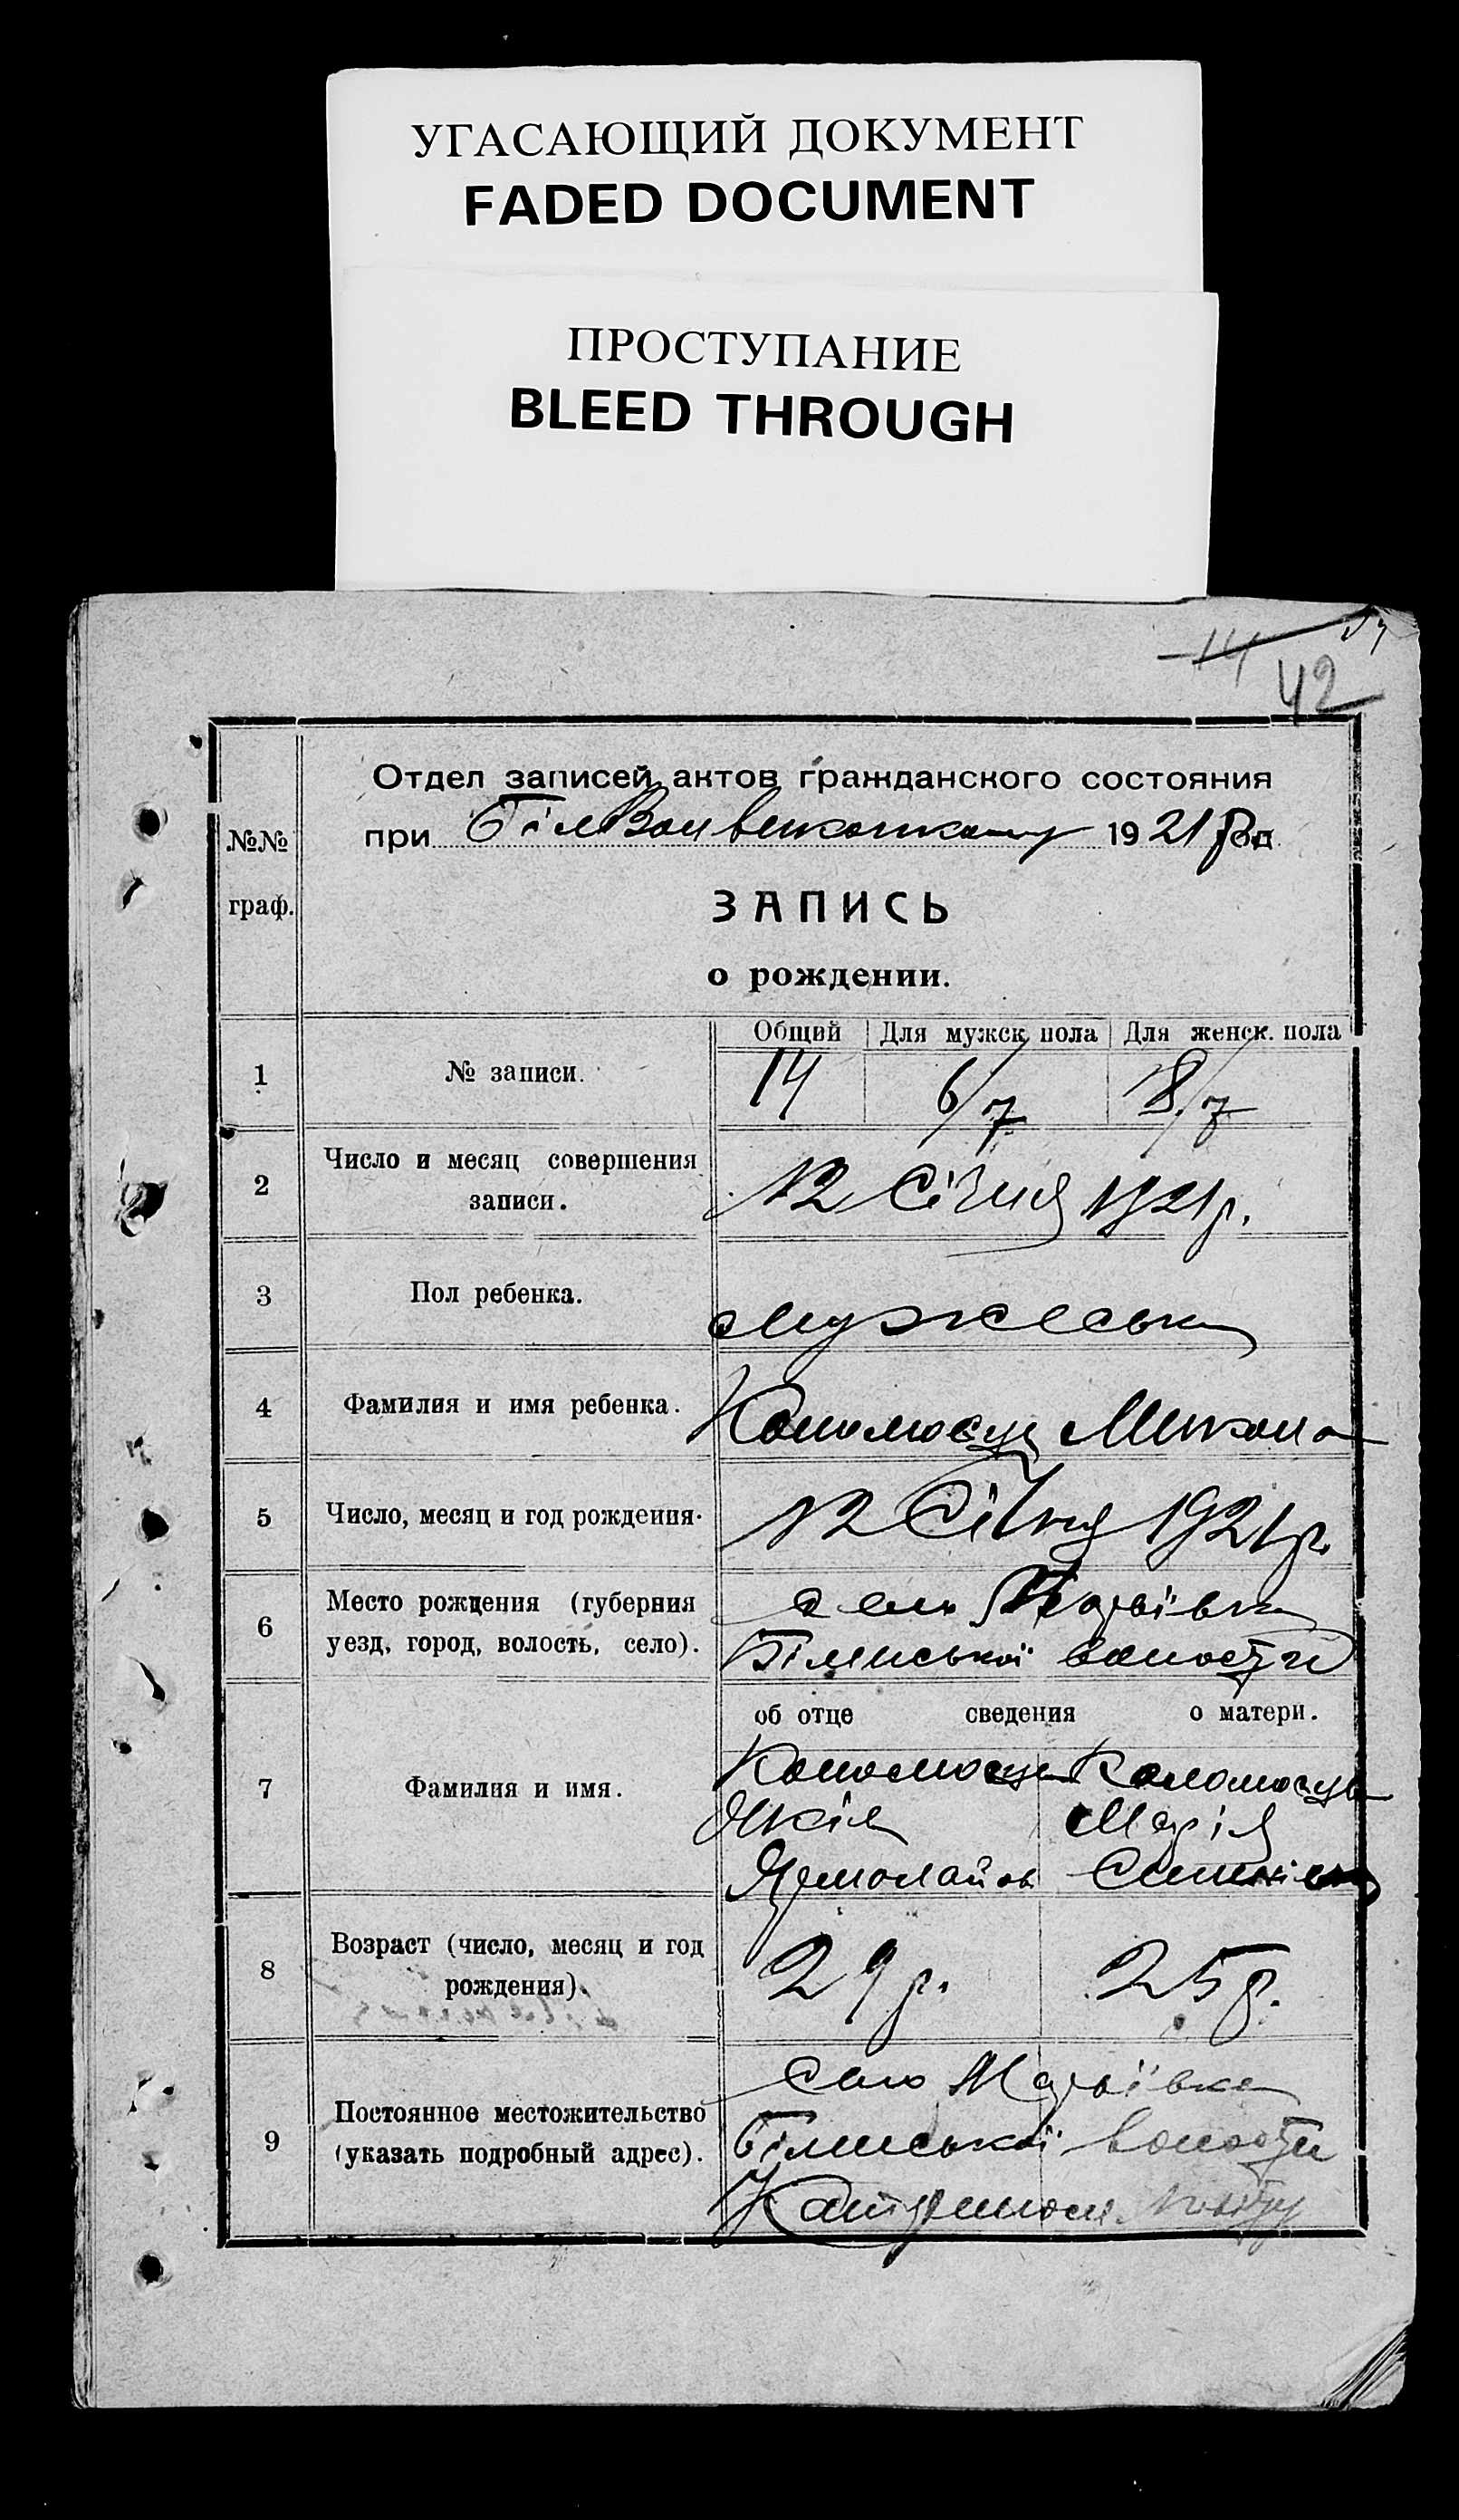 УГАСАЮЩИЙ ДОКУМЕНТ
FADED DOCUMENT
ПРОСТУПАНИЕ
BLEED THROUGH
14
42
Отдел записей актов гражданского состояния
при 1921 год
№№
граф.
ЗАПИСЬ
о рождении.
Общий Для мужск. пола Для женск. пола
1 № записи. 14 6/7 8/7
2 Число и месяц совершения
записи. 12 Січня 1921 р.
3 Пол ребенка.
4 Фамилия и имя ребенка. Микола
5 Число, месяц и год рождения. 12 Січня 1921 р.
6 Место рождения (губерния село Мар'ївка
уезд, город, волость, село). волости
об отце сведения о матери.
7 Фамилия и имя.
Яків Марія
8 Возраст (число, месяц и год
рождения). 29 р. 25 р.
село Мар'ївка
9 Постоянное местожительство
(указать подробный адрес). волости